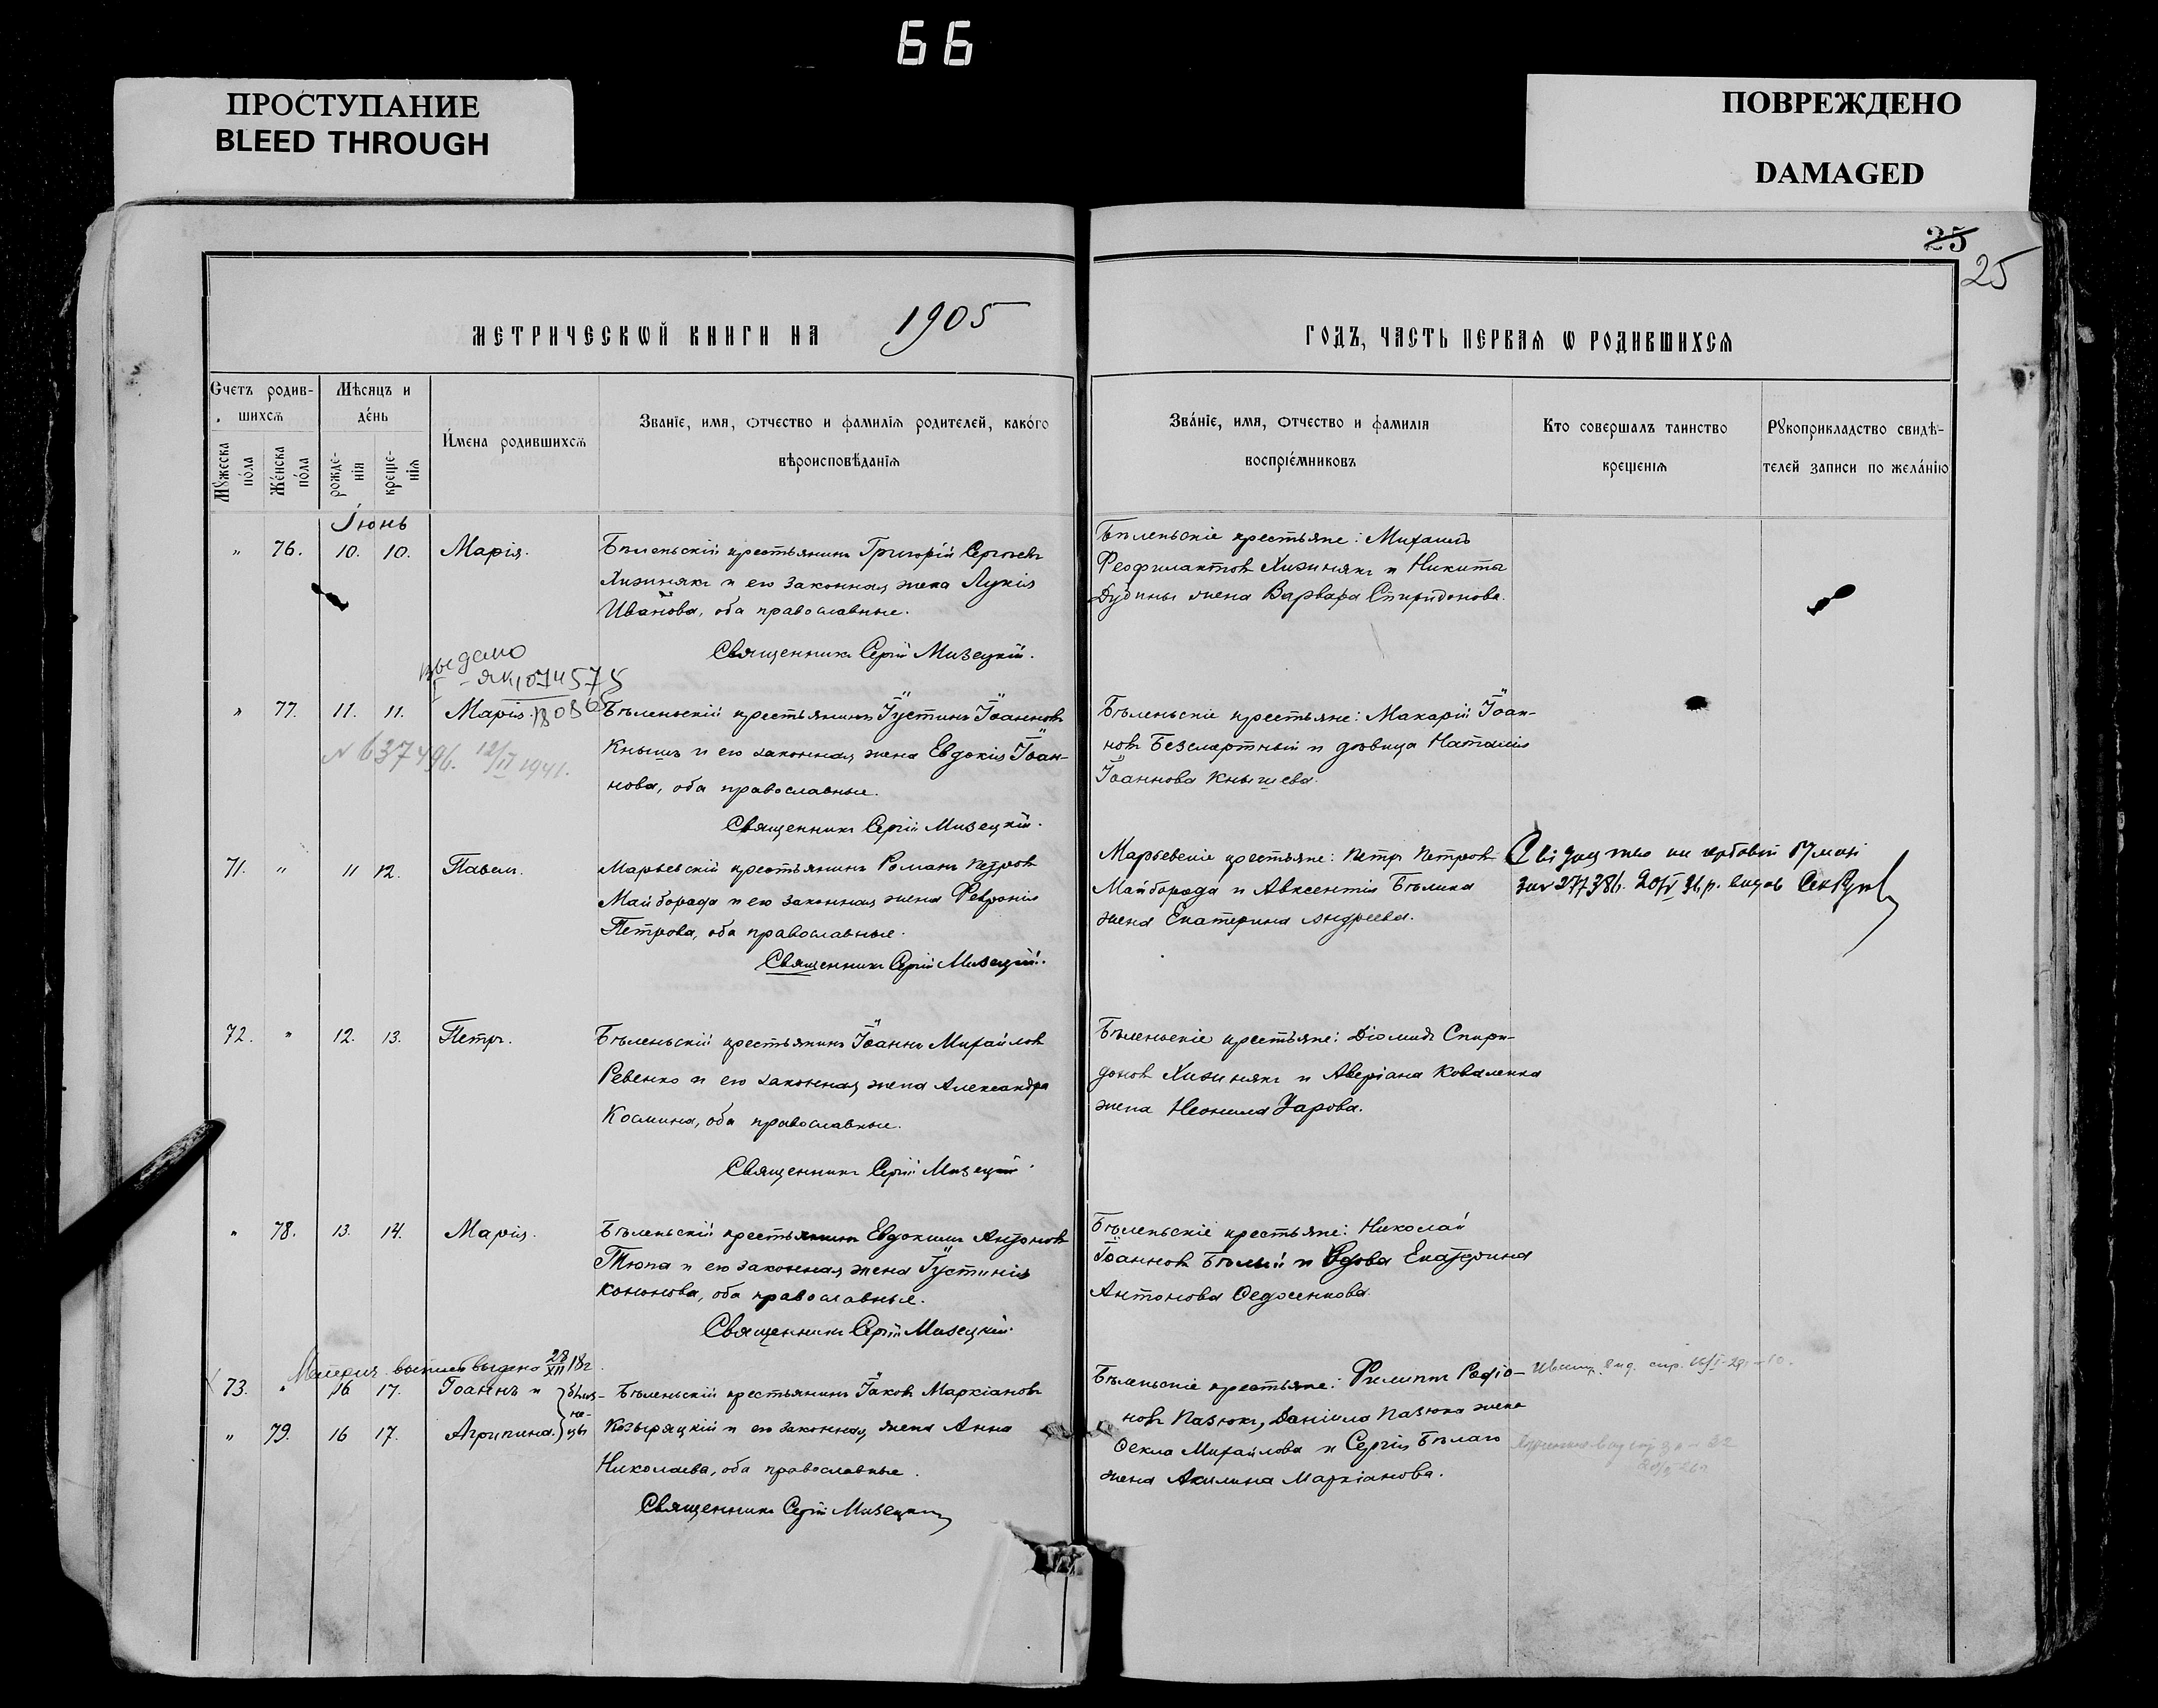 66
ПРОСТУПАНИЕ
BLEED THROUGH
ПОВРЕЖДЕНО
DAMAGED
25
25
МЕТРИЧЕСКѠЙ КНИГИ НА 1905
ГОДЪ, ЧАСТЬ ПЕРВАѦ Ѡ РОДИВШИХСѦ
Счетъ родив-
шихсѧ
Мѣсяцъ и
де́нь
Мꙋжеска по́ла
Же́нска по́ла
рожде-нія
креще-нїѧ
И́мена родившихсѧ
Званїе, имя, ѻтчество и фамилїѧ родителей, како́го
вѣроисповѣданїѧ
Зва́нїе, имя, ѻтчество и фамилїѧ
воспрїе́мниковъ
Кто совершалъ таинство
крещенїѧ
Рꙋкоприкладство свидѣ-
телей записи по жела́нїю
Іюнь
" 76. 10. 10. Марія.
Бѣленьскій крестьянинъ Григорій Сергіевъ
Хижнякъ и его законная жена Лукія
Иванова, оба православные.
Священникъ Сергій Мизецкій.
Бѣленьскіе крестьяне: Михаилъ
Феофилактовъ Хижнякъ и Никиты
Дубины жена Варвара Спиридонова.
выдано
" 77. 11. 11. Марія.
№ 637496. 12/II 1941.
Бѣленьскій крестьянинъ Іустинъ Іоанновъ
Кнышъ и его законная жена Евдокія Іоан-
нова, оба православные.
Священникъ Сергій Мизецкій.
Бѣленьскіе крестьяне: Макарій Іоан-
новъ Безсмертный и дѣвица Наталія
Іоаннова Кнышева.
71. " 11 12. Павелъ.
Марьевскій крестьянинъ Романъ Петровъ
Майборода и его законная жена Февронія
Петрова, оба православные.
Священникъ Сергій Мизецкій.
Марьевскіе крестьяне: Петръ Петровъ
Майборода и Авксентія Бѣлика
жена Екатерина Андреева.
277386. 20/V 36 р. видав
72. " 12. 13. Петръ.
Бѣленьскій крестьянинъ Іоаннъ Михайловъ
Ревенко и его законная жена Александра
Космина, оба православные.
Священникъ Сергій Мизецкій.
Бѣленьскіе крестьяне: Діомидъ Спири-
доновъ Хижнякъ и Аверіана Коваленка
жена Неонила Уарова.
" 78. 13. 14. Марія.
Бѣленьскій крестьянинъ Евдокимъ Антоновъ
Тюпа и его законная жена Іустинія
Кононова, оба православные.
Священникъ Сергій Мизецкій.
Бѣленьскіе крестьяне: Николай
Іоанновъ Бѣлый и вдова Екатерина
Антонова Федосенкова.
выдано 28/XII 18 г.
73. " 16 17. Іоаннъ и
" 79. 16 17. Агрипина.
близ-
не-
цы
Бѣленьскій крестьянинъ Іаковъ Маркіановъ
Козыряцкій и его законная жена Анна
Николаева, оба православные.
Священникъ Сергій Мизецкій
Бѣленьскіе крестьяне: Филиппъ Родіо-
новъ Пазюкъ, Даніила Пазюка жена
Фекла Михайлова и Сергія Бѣлаго
жена Акилина Маркіанова.